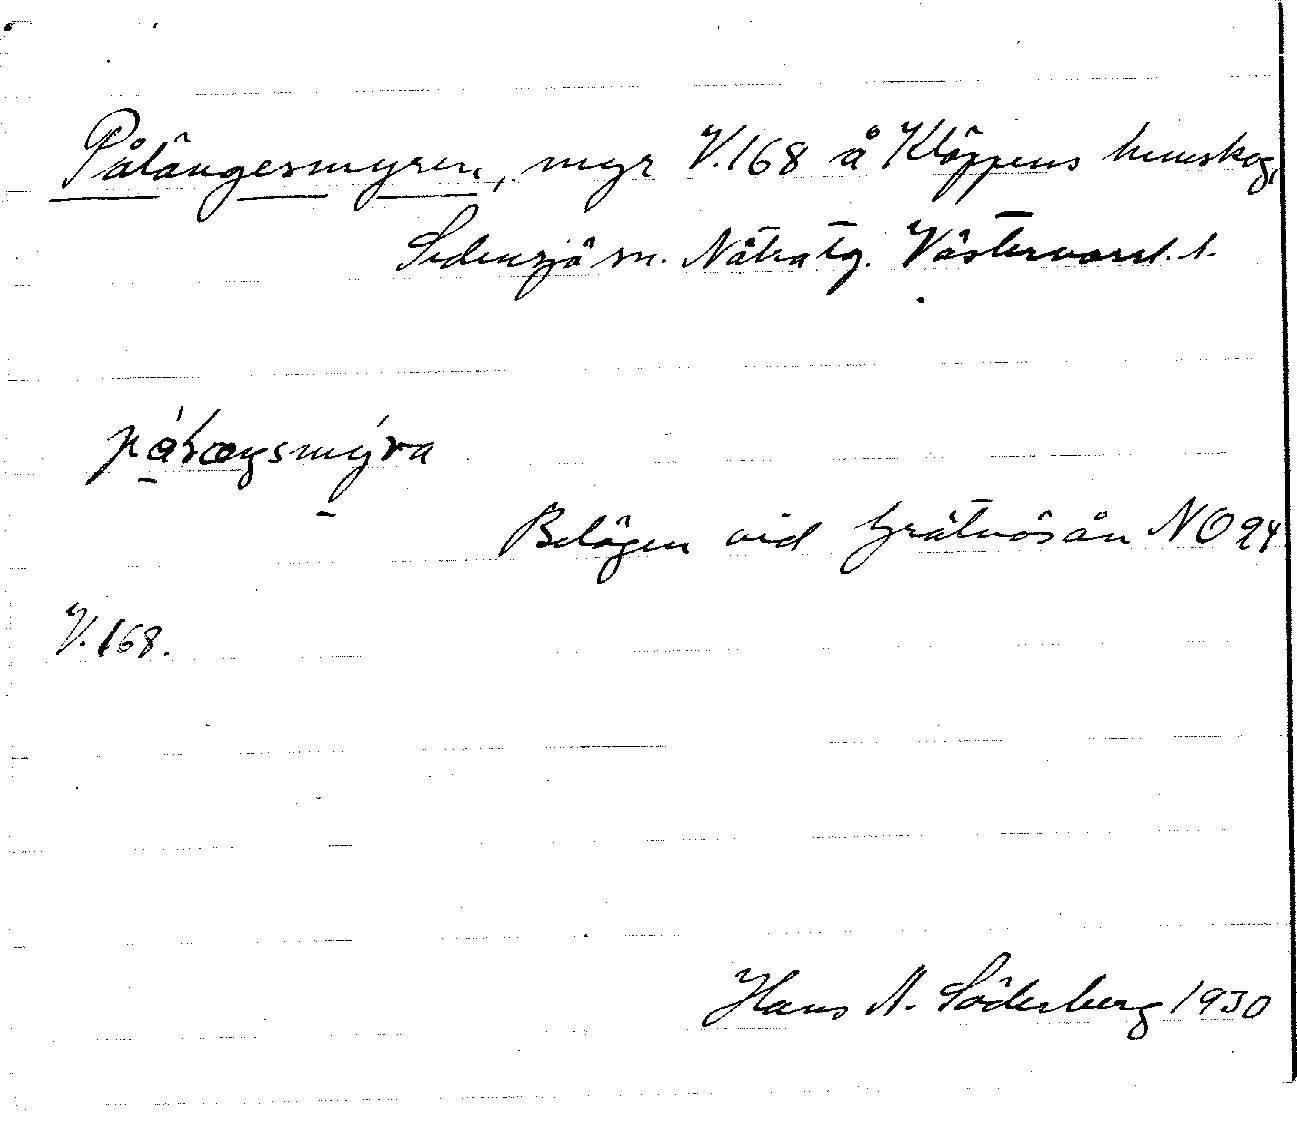 Pålängesmyren, myr V.168 å Kläppens hemskog,
Sidensjö sn. Nätra tg. Västernorrl. l.
Belägen vid Grätnäsån NO 94
V. 168.
Hans A. Söderberg 1930